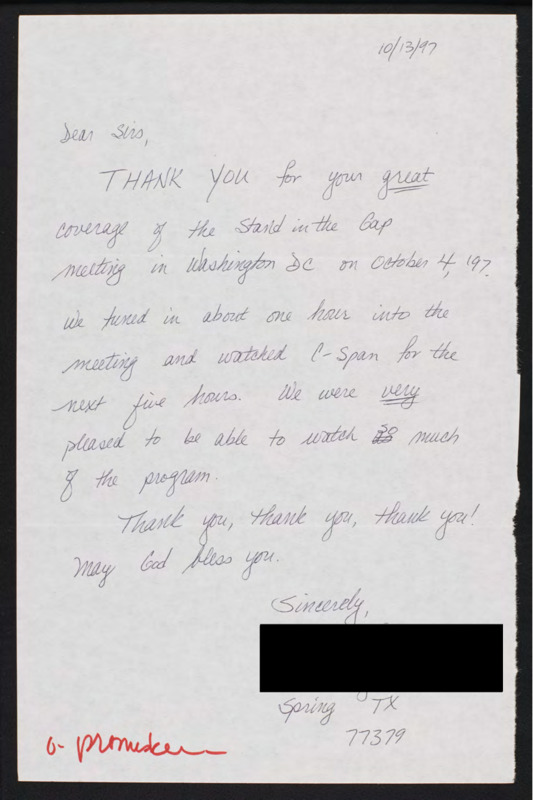 10/13/97
Dear Sirs,
THANK YOU for your great
coverage of the Stand in the Gap
meeting in Washington DC on October 4, '97.
We tuned in about one hour into the
meeting and watched C-Span for the
next five hours. We were very
pleased to be able to watch so much
of the program.
Thank you, thank you, thank you!
May God bless you.
Sincerely,
Spring TX
77379